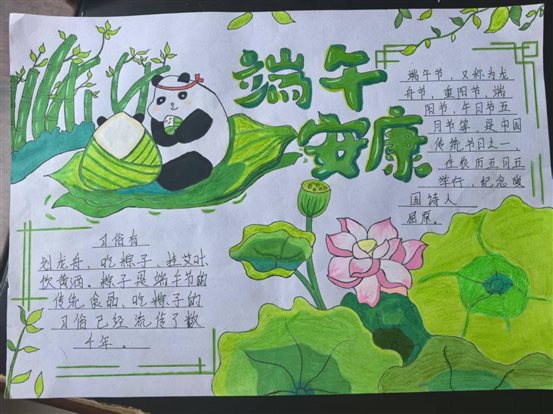 端午
安康
端午节，又称为龙
舟节，重阳节，端
阳节，午日节五
月节等，是中国
传统节日之一，
在农历五月五
举行，纪念爱
国诗人
屈原。
习俗有
划龙舟，吃粽子，挂艾叶
饮黄酒。粽子是端午节的
传统食品，吃粽子的
习俗已经流传了数
千年。